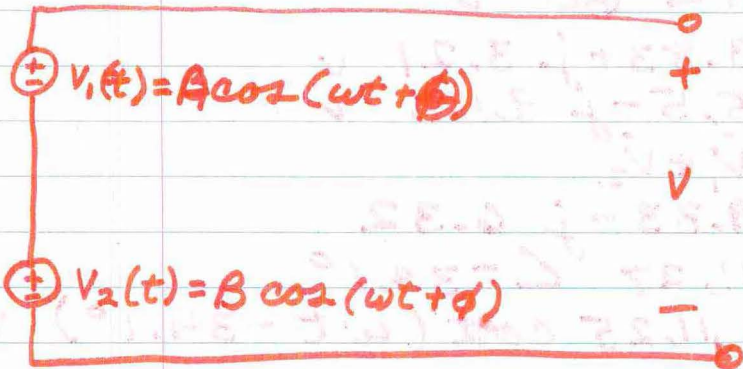 ± V₁(t)=A cos(ωt+ )
+
V
± V₂(t)=B cos(ωt+ϕ)
−